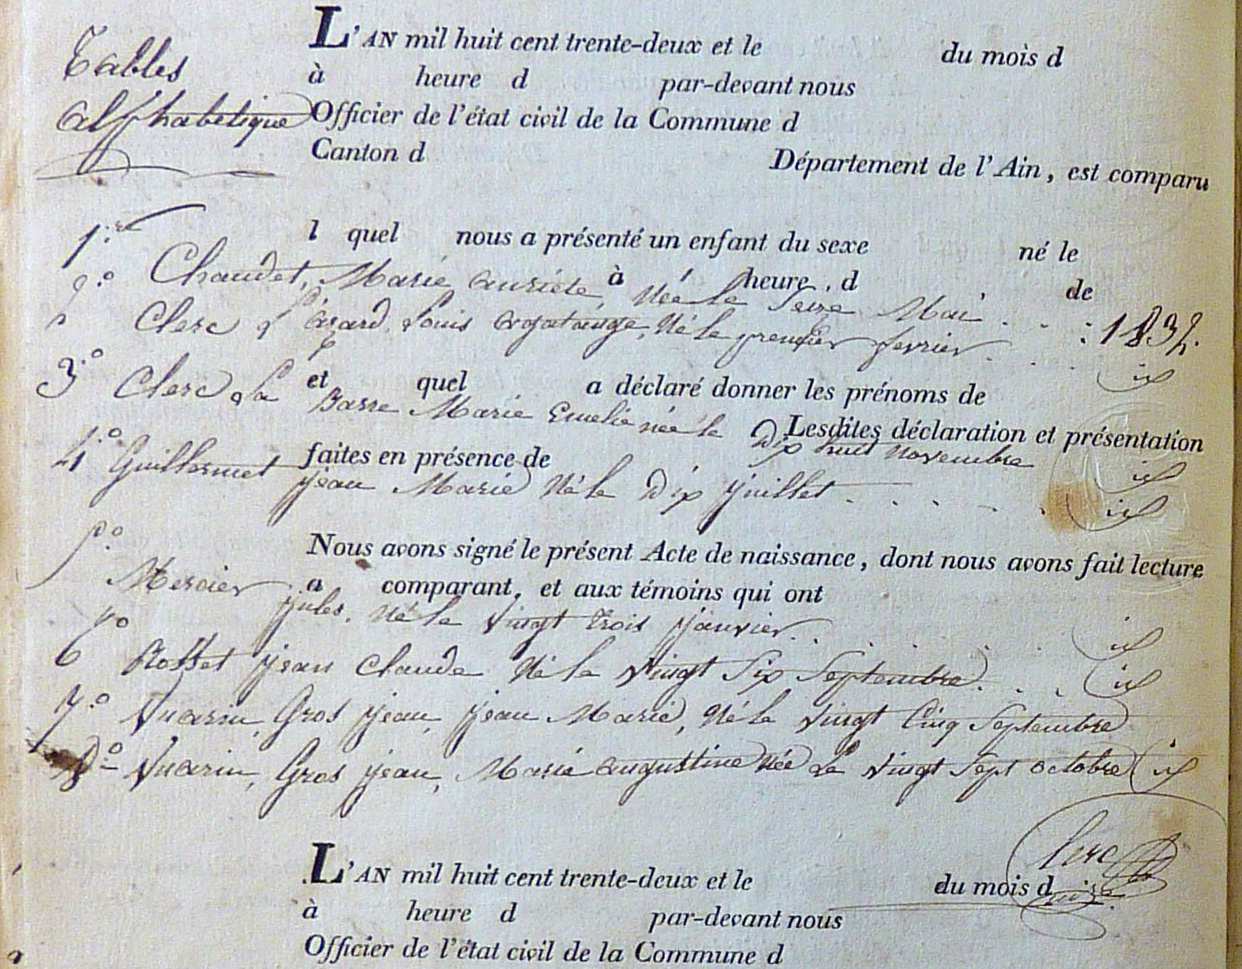 Tables
alphabetique
L'AN mil huit cent trente-deux et le du mois d
à heure d par-devant nous
Officier de l'état civil de la Commune d
Canton d Département de l'Ain, est comparu
l quel nous a présenté un enfant du sexe né le
à heure, d de
1.re Chaudet, Marie auriéie, Née le Seize Mai . . . : 1832.
2.o Clerc d Louis Née le premier fevrier . . . id
et quel a déclaré donner les prénoms de
3.o Clerc Marie Emelie née le Dix huit Novembre id
Lesdites déclaration et présentation
faites en présence de
4.o Guillermet jean Marie Né le Dix juillet . . . . id
Nous avons signé le présent Acte de naissance, dont nous avons fait lecture
a comparant, et aux témoins qui ont
5.o Mercier jules, Né le Vingt trois janvier . . . id
6.o Rosset jean Claude Né le Vingt Six Septembre . . . id
7.o Vuarin, Gros jean, jean Marie, Né le Vingt Cinq Septembre
8.o Vuarin, Gros jean, Marie augustine Née Le Vingt Sept octobre id
Clerc
L'AN mil huit cent trente-deux et le du mois d
maire
à heure d par-devant nous
Officier de l'état civil de la Commune d